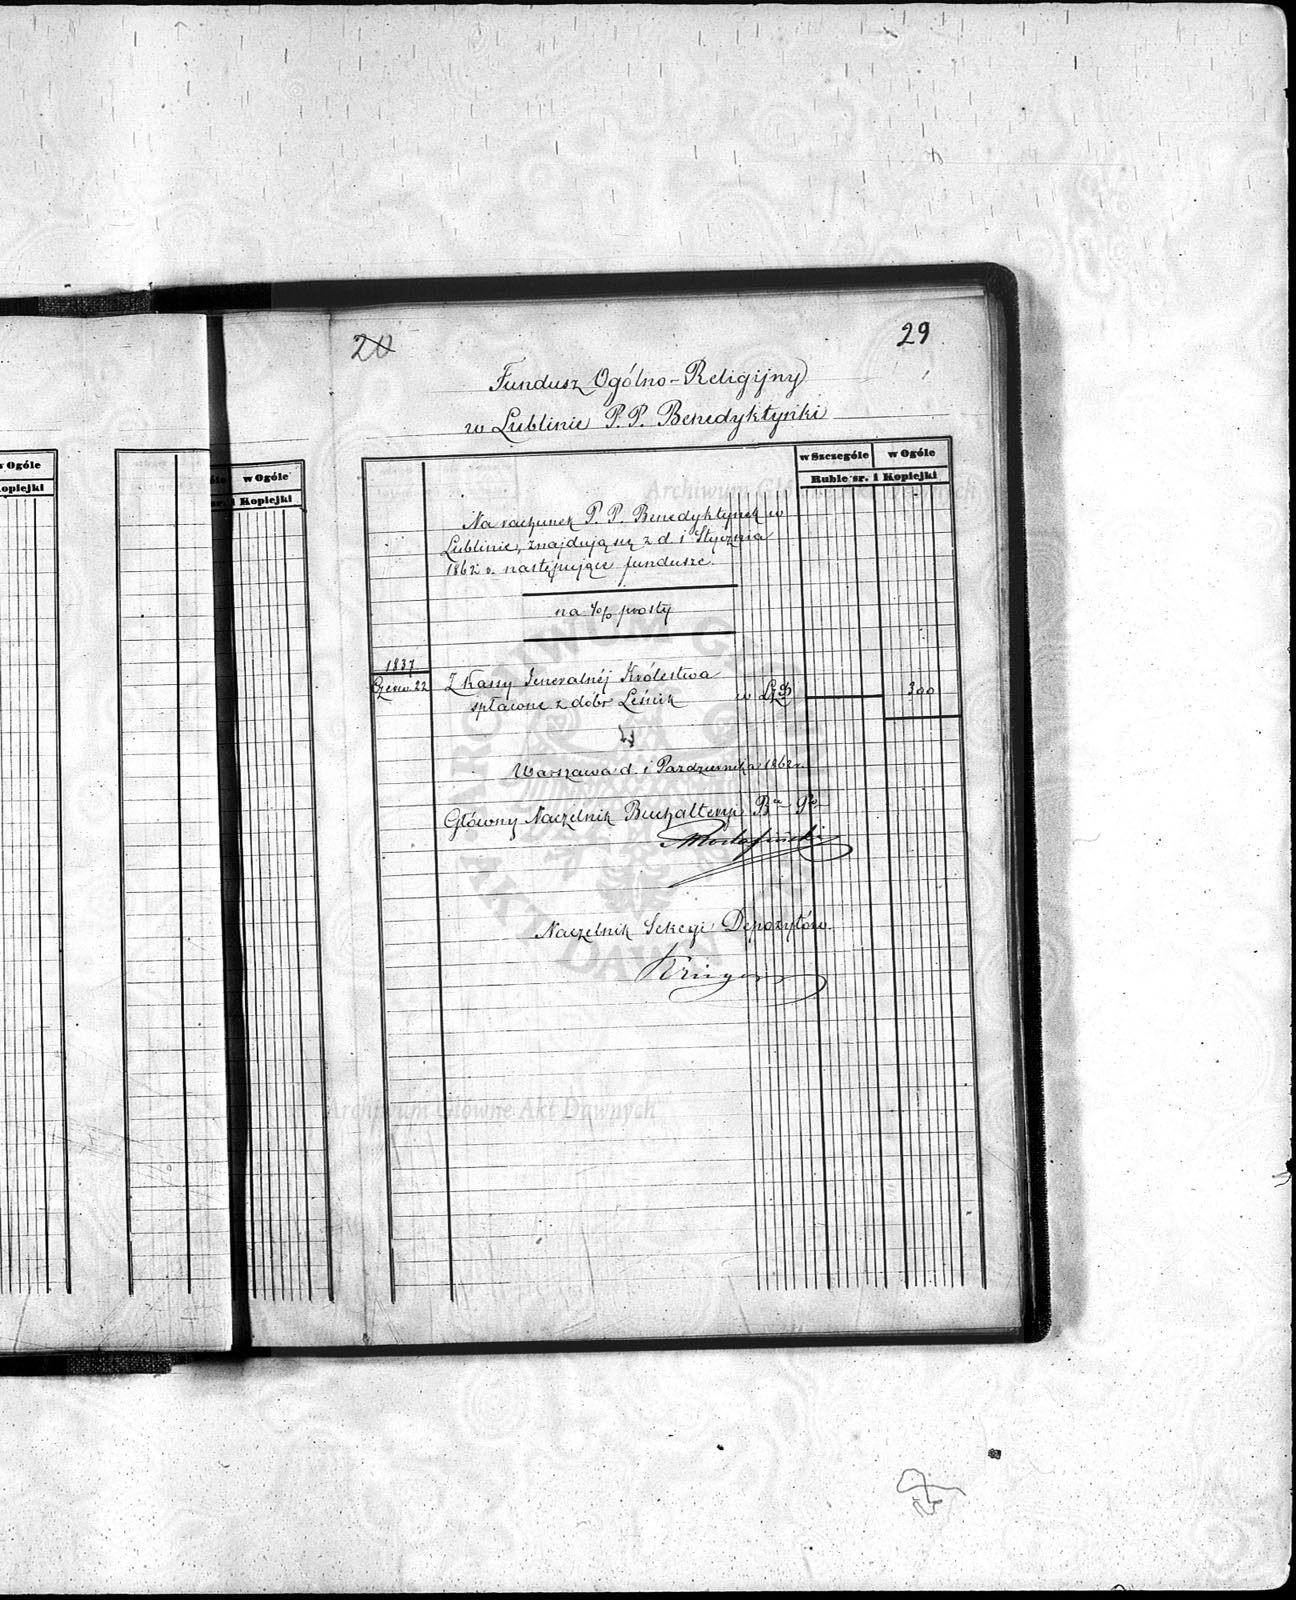 20
29
Fundusz Ogólno-Religijny
w Lublinie P.P. Benedyktynki
w Ogóle
Kopiejki
w Ogóle
sr. i Kopiejki
w Szczególe
w Ogóle
Ruble sr. i Kopiejki
Na rachunek P. P. Benedyktynek w
Lublinie, znajdują się z d. 1 Stycznia
1862 r. następujące fundusze.
na % prosty
1837
Czerw. 22
Z Kassy Jeneralnéj Królestwa
spłacone z dóbr Leśnik
w
300
Warszawa d. 1 Października 1862 r.
Główny Naczelnik Buchalteryi
Naczelnik Sekcyi Depozytów.
Krüger
Archiwum Główne Akt Dawnych
ARCHIWUM GŁÓWNE AKT DAWNYCH
Archiwum Główne Akt Dawnych